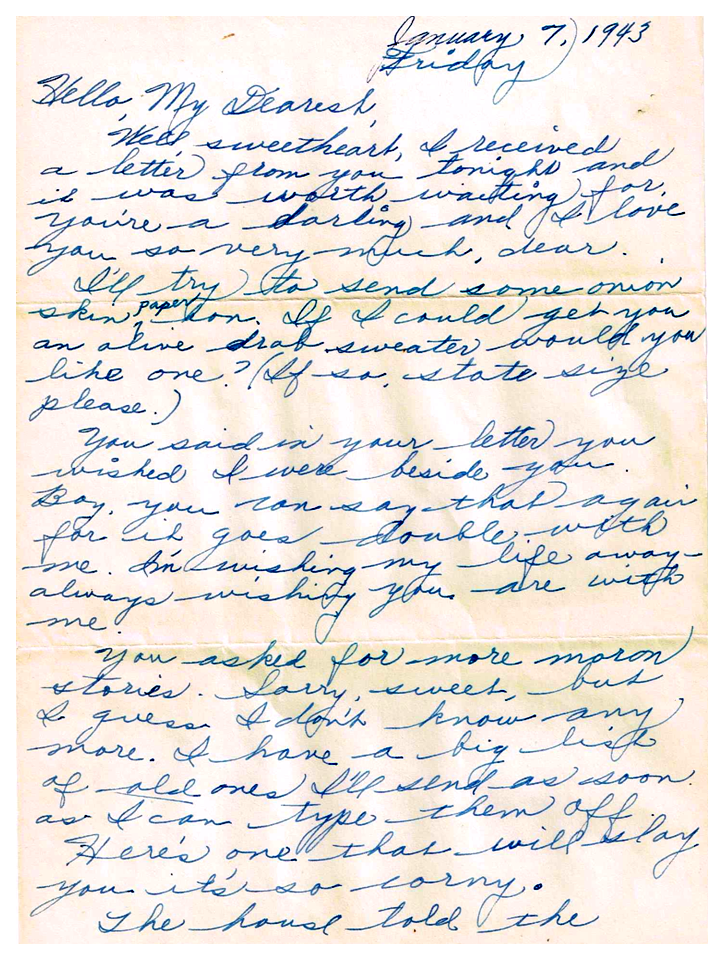 January 7, 1943
Friday
Hello, My Dearest,
Well sweetheart, I received
a letter from you tonight and
it was worth waiting for.
You're a darling and I love
you so very much, dear.
I'll try to send some onion
skin paper son. If I could get you
an olive drab sweater would you
like one? (If so, state size
please.)
You said in your letter you
wished I were beside you.
Boy, you can say that again
for it goes double with
me. I'm wishing my life away-
always wishing you are with
me.
You asked for more moron
stories. Sorry, sweet, but
I guess I don't know any
more. I have a big list
of old ones I'll send as soon
as I can type them off.
Here's one that will slay
you it's so corny.
The house told the